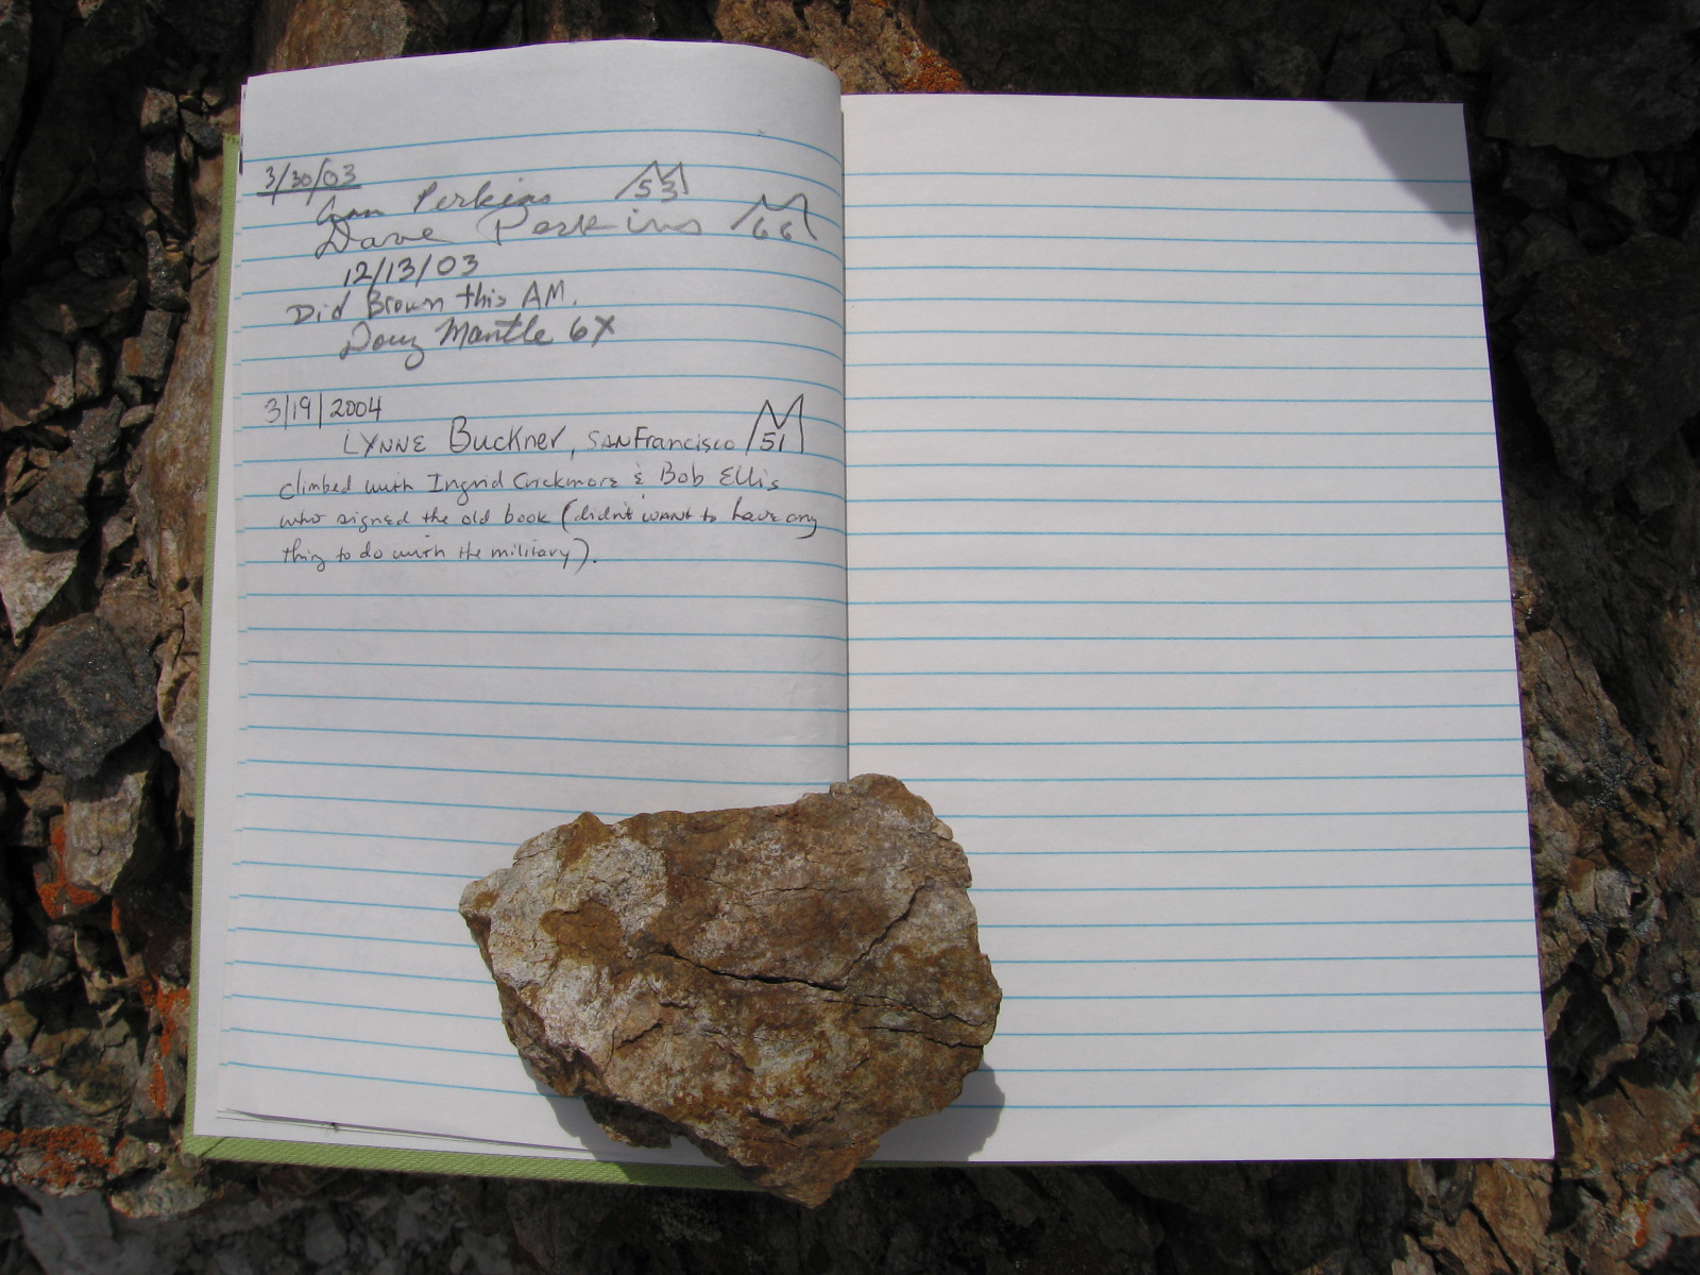 3/30/03
Ann Perkins 53
Dave Perkins 66
12/13/03
Did Brown this AM.
Doug Mantle 6X
3/19/2004
LYNNE Buckner, SAN Francisco 51
climbed with Ingrid Crickmore & Bob Ellis
who signed the old book (didn't want to have any
thing to do with the military).